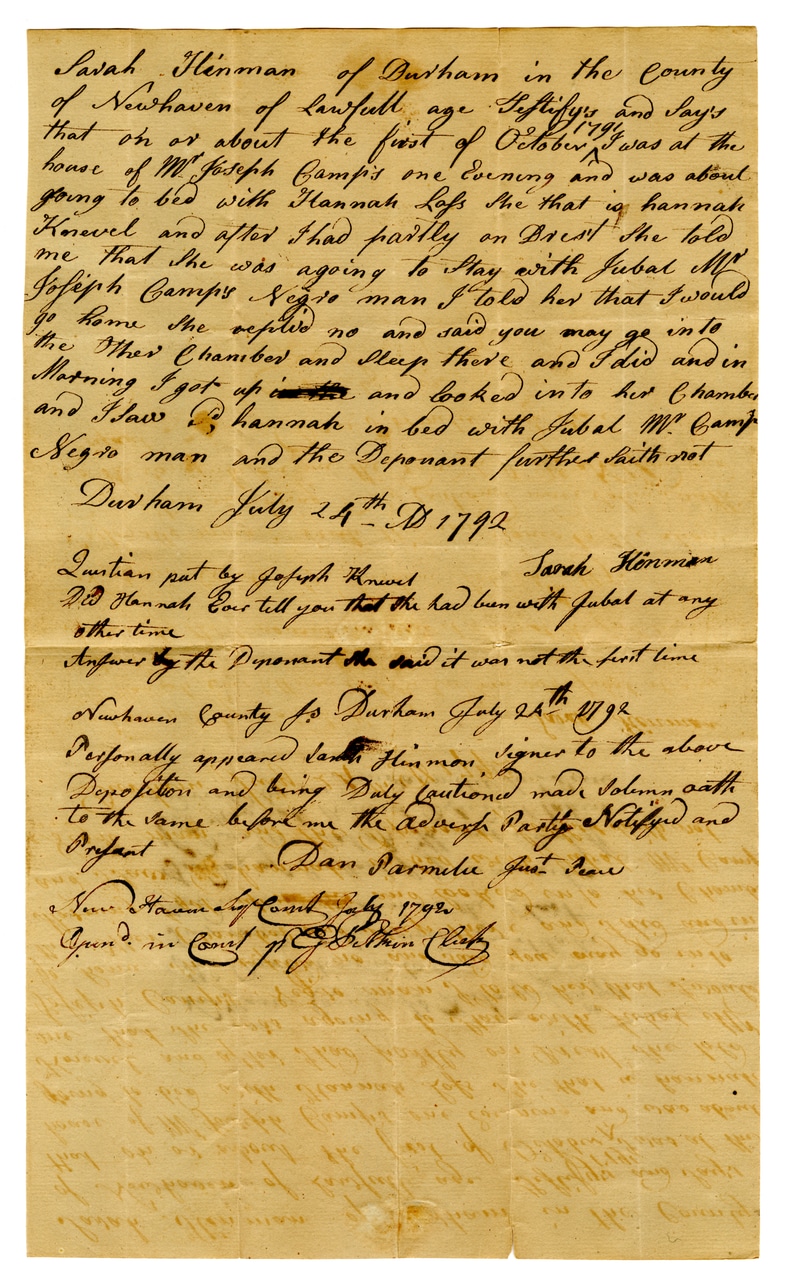 Sarah Hinman of Durham in the County
of Newhaven of Lawfull age Testify's and Say's
that on or about the first of October 179^ I was at the
house of Mr Joseph Camp's one Evening and was about
going to bed with Hannah Loss She that is hannah
Knevel and after I had partly on Drest She told
me that She was agoing to Stay with Jubal Mr
Joseph Camp's Negro man I told her that I would
go home She replid no and said you may go into
the Other Chamber and Sleep there and I did and in
Morning I got up and looked into her Chamber
and I Saw Sd hannah in bed with Jubal Mr Camp
Negro man and the Deponant further Saith not
Durham July 24th AD 1792
Sarah Hinman
Question put by Joseph Knevel
Did Hannah Ever tell you that she had been with Jubal at any
other time
Answer by the Deponant she said it was not the first time
Newhaven County Ss Durham July 24th 1792
Personally appeared Sarah Hinmon signer to the above
Deposition and being Duly Cautioned made Solemn oath
to the Same before me the adverse Party Notifyed and
Present
Dan Parmelie Just Peace
New Haven Supr Court July 1792
Opend. in Court pr Clerk